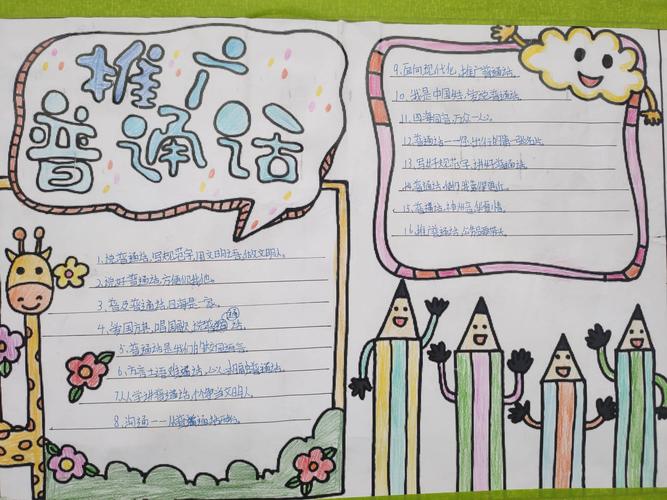 推广
普通话
1.说普通话,写规范字,用文明语,做文明人。
2.说好普通话,方便你我他。
3.普及普通话,四海是一家。
4.爱国旗,唱国歌,说普通话。
5.普通话是我们的校园语言。
6.方言土语难 话,心心相印普通话。
7.人人学讲普通话, 争当文明人。
8.沟通——从普通话开始。
9.面向现代化,推广普通话。
10.我是中国娃,爱说普通话。
11.四海同音,万众一心。
12.普通话——你 的第一张名片。
13.写好规范字,讲好普通话。
14.普通话,使你我靠得更近。
15.普通话, 情。
16.推广普通话,